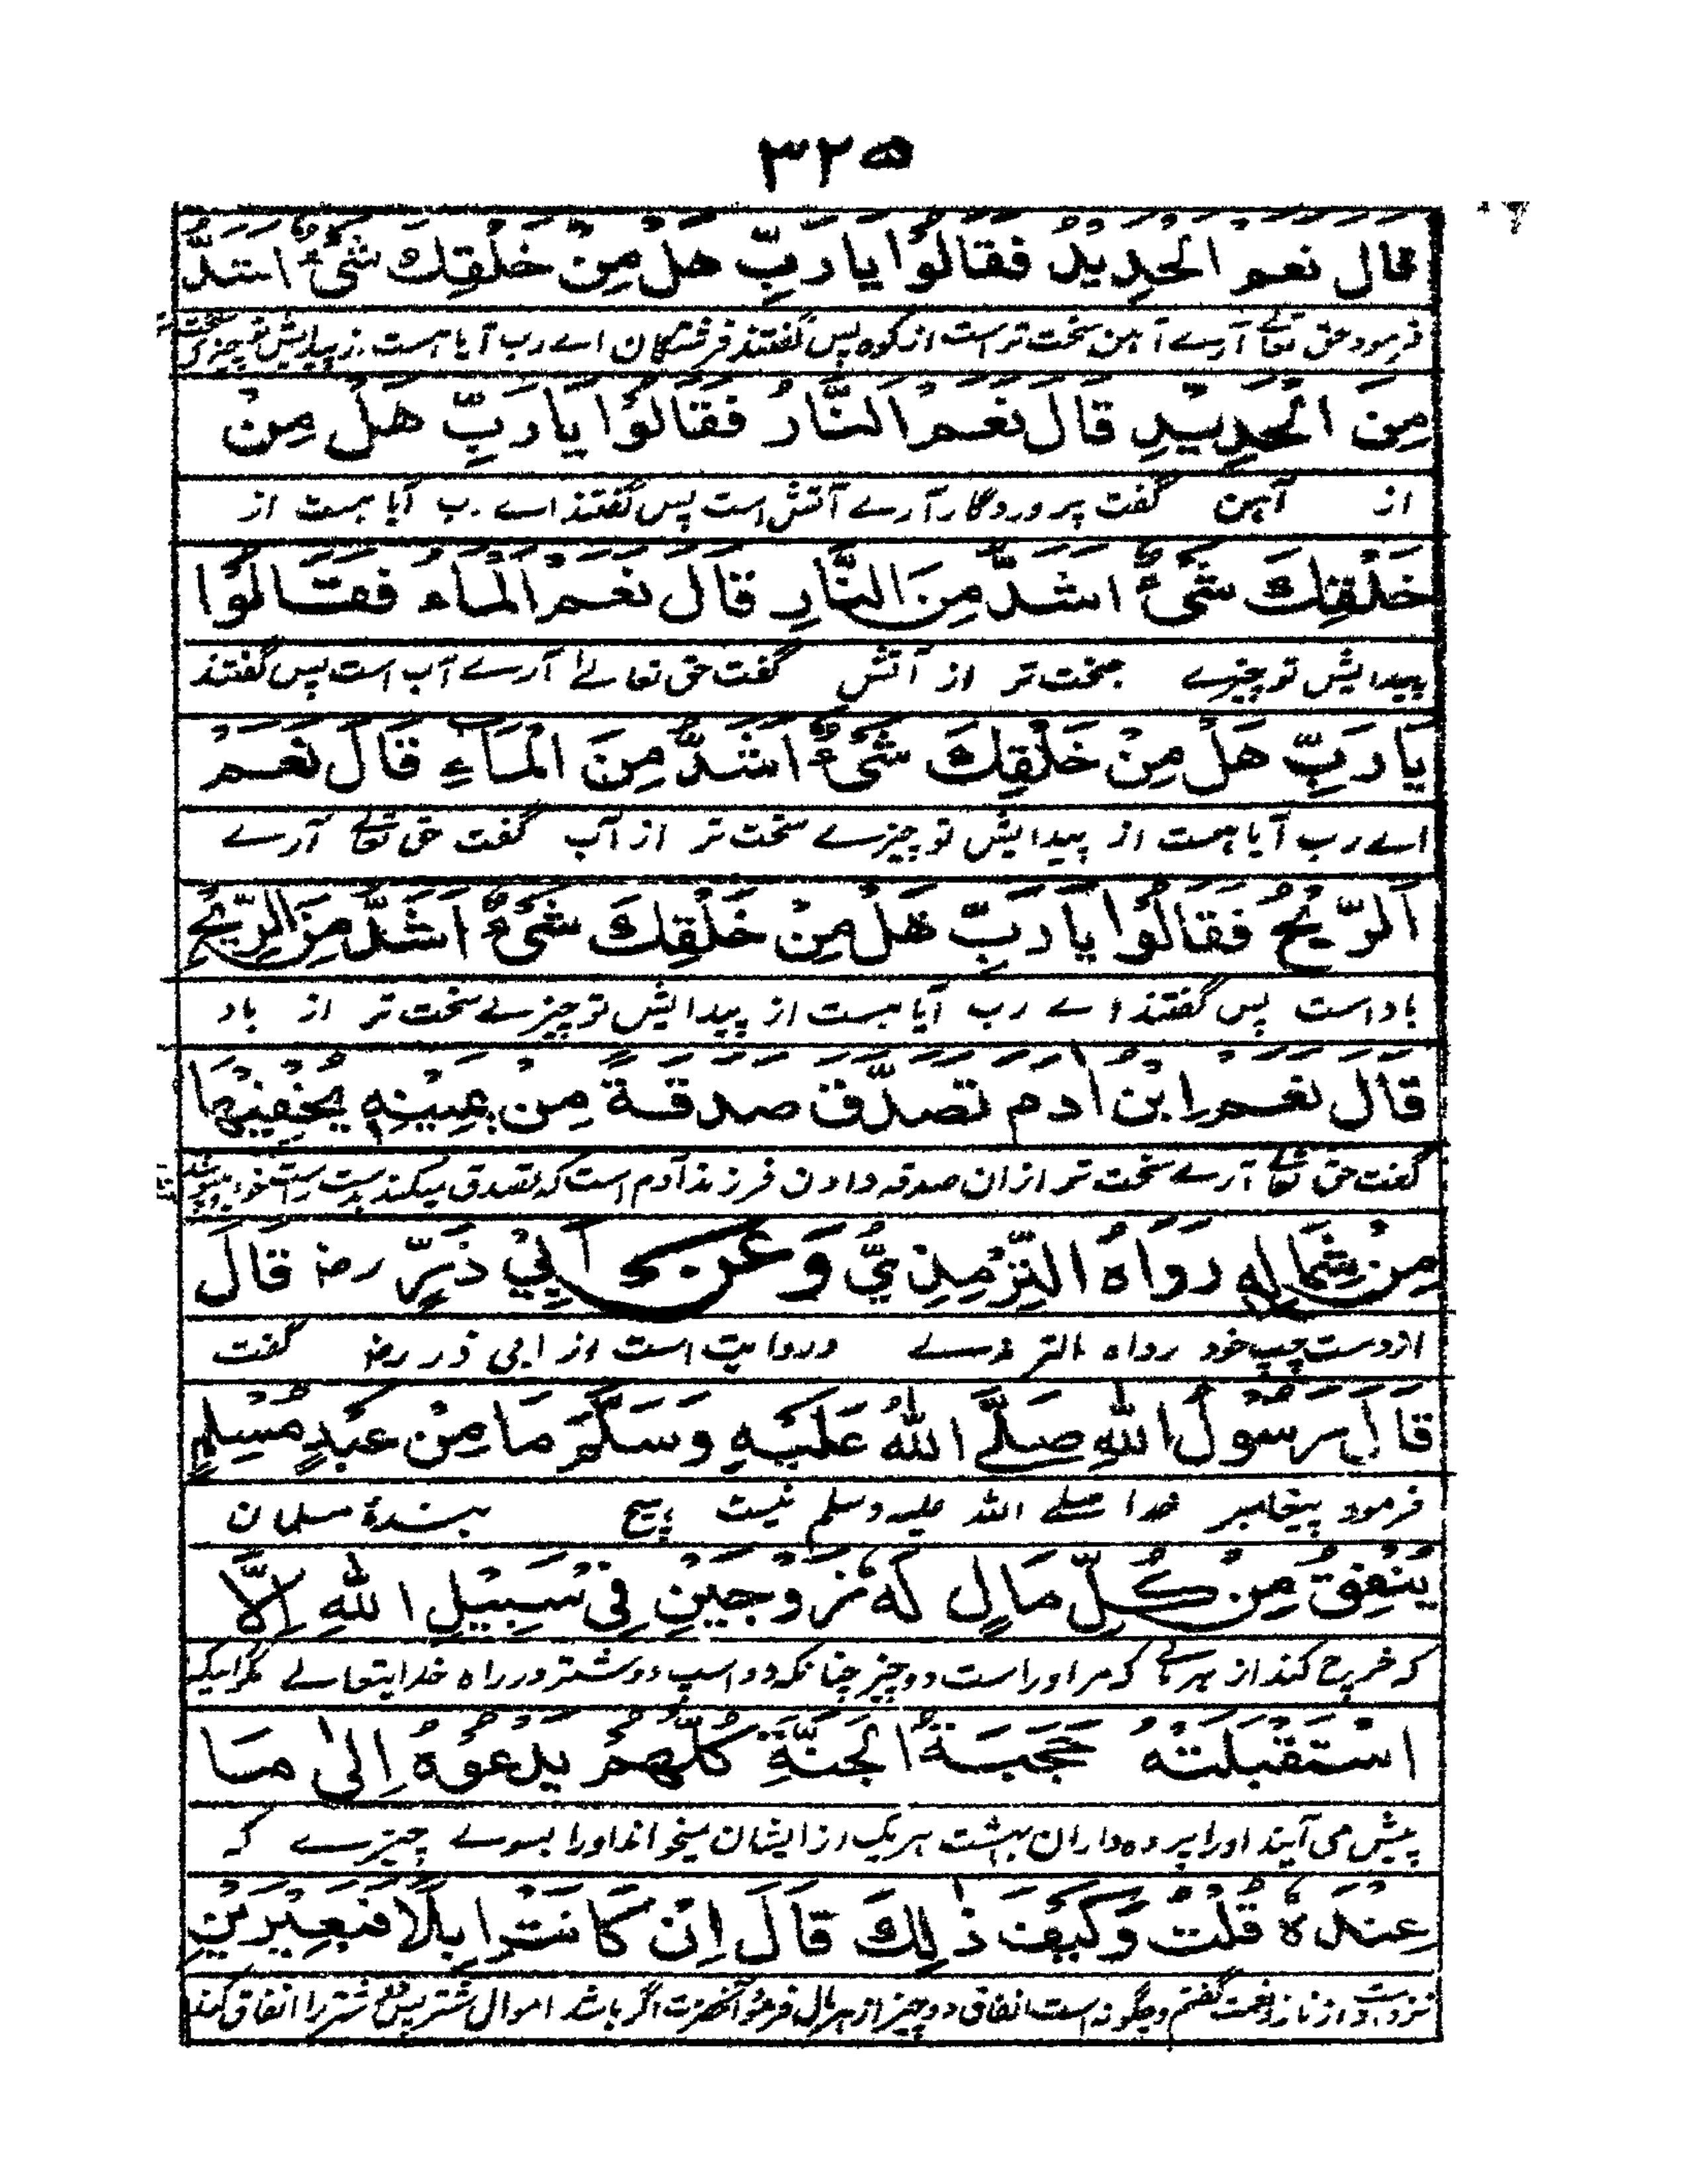 ۳۲۵
قَالَ نَعَمْ الْحَدِيْدُ فَقَالُوْا يَا رَبِّ هَلْ مِنْ خَلْقِكَ شَيْءٌ اَشَدُّ
فرمود حق تعالےٰ آرے آہن سخت تر است از کوہ پس گفتند فرشتگان اے رب آیا ہست از پیدایش تو چیزے
مِنَ الْحَدِيْدِ قَالَ نَعَمْ النَّارُ فَقَالُوْا يَا رَبِّ هَلْ مِنْ
از آہن گفت پروردگار آرے آتش است پس گفتند اے رب آیا ہست از
خَلْقِكَ شَيْءٌ اَشَدُّ مِنَ النَّارِ قَالَ نَعَمْ الْمَاءُ فَقَالُوْا
پیدایش تو چیزے سخت تر از آتش گفت حق تعالےٰ آرے آب است پس گفتند
يَا رَبِّ هَلْ مِنْ خَلْقِكَ شَيْءٌ اَشَدُّ مِنَ الْمَاءِ قَالَ نَعَمْ
اے رب آیا ہست از پیدایش تو چیزے سخت تر از آب گفت حق تعالےٰ آرے
اَلرِّيْحُ فَقَالُوْا يَا رَبِّ هَلْ مِنْ خَلْقِكَ شَيْءٌ اَشَدُّ مِنَ الرِّيْحِ
باد است پس گفتند اے رب آیا ہست از پیدایش تو چیزے سخت تر از باد
قَالَ نَعَمْ ابْنُ اٰدَمَ تَصَدَّقَ صَدَقَةً مِنْ يَمِيْنِهِ يُخْفِيْهَا
گفت حق تعالےٰ آرے سخت تر ازان صدقہ دادن فرزند آدم است کہ تصدق میکند بدست راست خود
مِنْ شِمَالِهِ رَوَاهُ التِّرْمِذِيُّ وَعَنْ اَبِيْ ذَرٍّ رض قَالَ
از دست چپ خود رواہ الترمذے وروایت است از ابی ذر رض گفت
قَالَ رَسُوْلُ اللّٰهِ صَلَّے اللّٰهُ عَلَيْهِ وَسَلَّمَ مَا مِنْ عَبْدٍ مُسْلِمٍ
فرمود پیغامبر خدا صلے اللہ علیہ وسلم نیست ہیچ بندۂ مسلمان
يُنْفِقُ مِنْ كُلِّ مَالٍ لَهٗ زَوْجَيْنِ فِيْ سَبِيْلِ اللّٰهِ اِلَّا
کہ خرچ کند از ہر مالے کہ مر اوراست دو چیز چنانکہ دو اسپ دو شتر در راہ خدایتعالے مگر اینکہ
اسْتَقْبَلَتْهُ حَجَبَةُ الْجَنَّةِ كُلُّهُمْ يَدْعُوْهُ اِلٰى مَا
پیش می آیند اورا پردہ داران بہشت ہریک از ایشان میخواند اورا بسوے چیزے کہ
عِنْدَهٗ قُلْتُ وَكَيْفَ ذٰلِكَ قَالَ اِنْ كَانَتْ اِبِلًا فَبَعِيْرَيْنِ
نزد اوست از ناز ونعمت گفتم وچگونہ است انفاق دو چیز از ہر مال فرمود آنحضرت اگر باشد اموال شتر پس شتر را انفاق کند